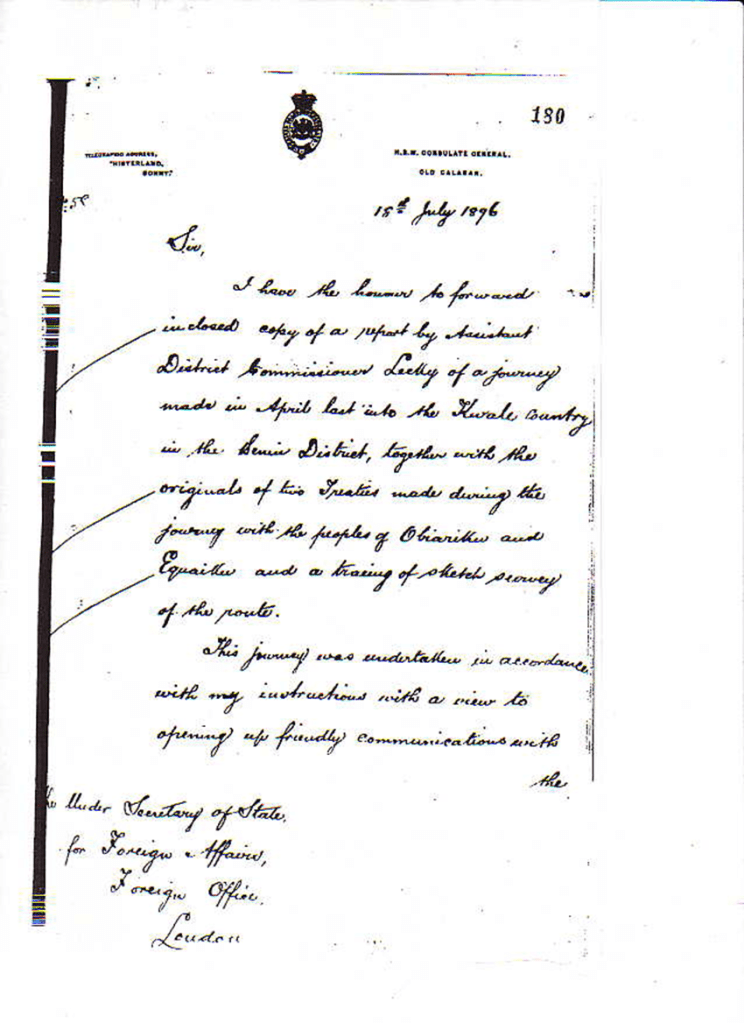 180
TELEGRAPHIC ADDRESS,
"HINTERLAND,
BONNY."
H.B.M. CONSULATE GENERAL.
OLD CALABAR.
15th July 1896
Sir,
I have the honour to forward
inclosed copy of a report by Assistant
District Commissioner Lecky of a journey
made in April last into the Kwale country
in the Benin District, together with the
originals of two Treaties made during the
journey with the peoples of Obiariku and
Equaiku and a tracing of sketch survey
of the route.
This journey was undertaken in accordance
with my instructions with a view to
opening up friendly communications with
the
Under Secretary of State.
for Foreign Affairs,
Foreign Office.
London